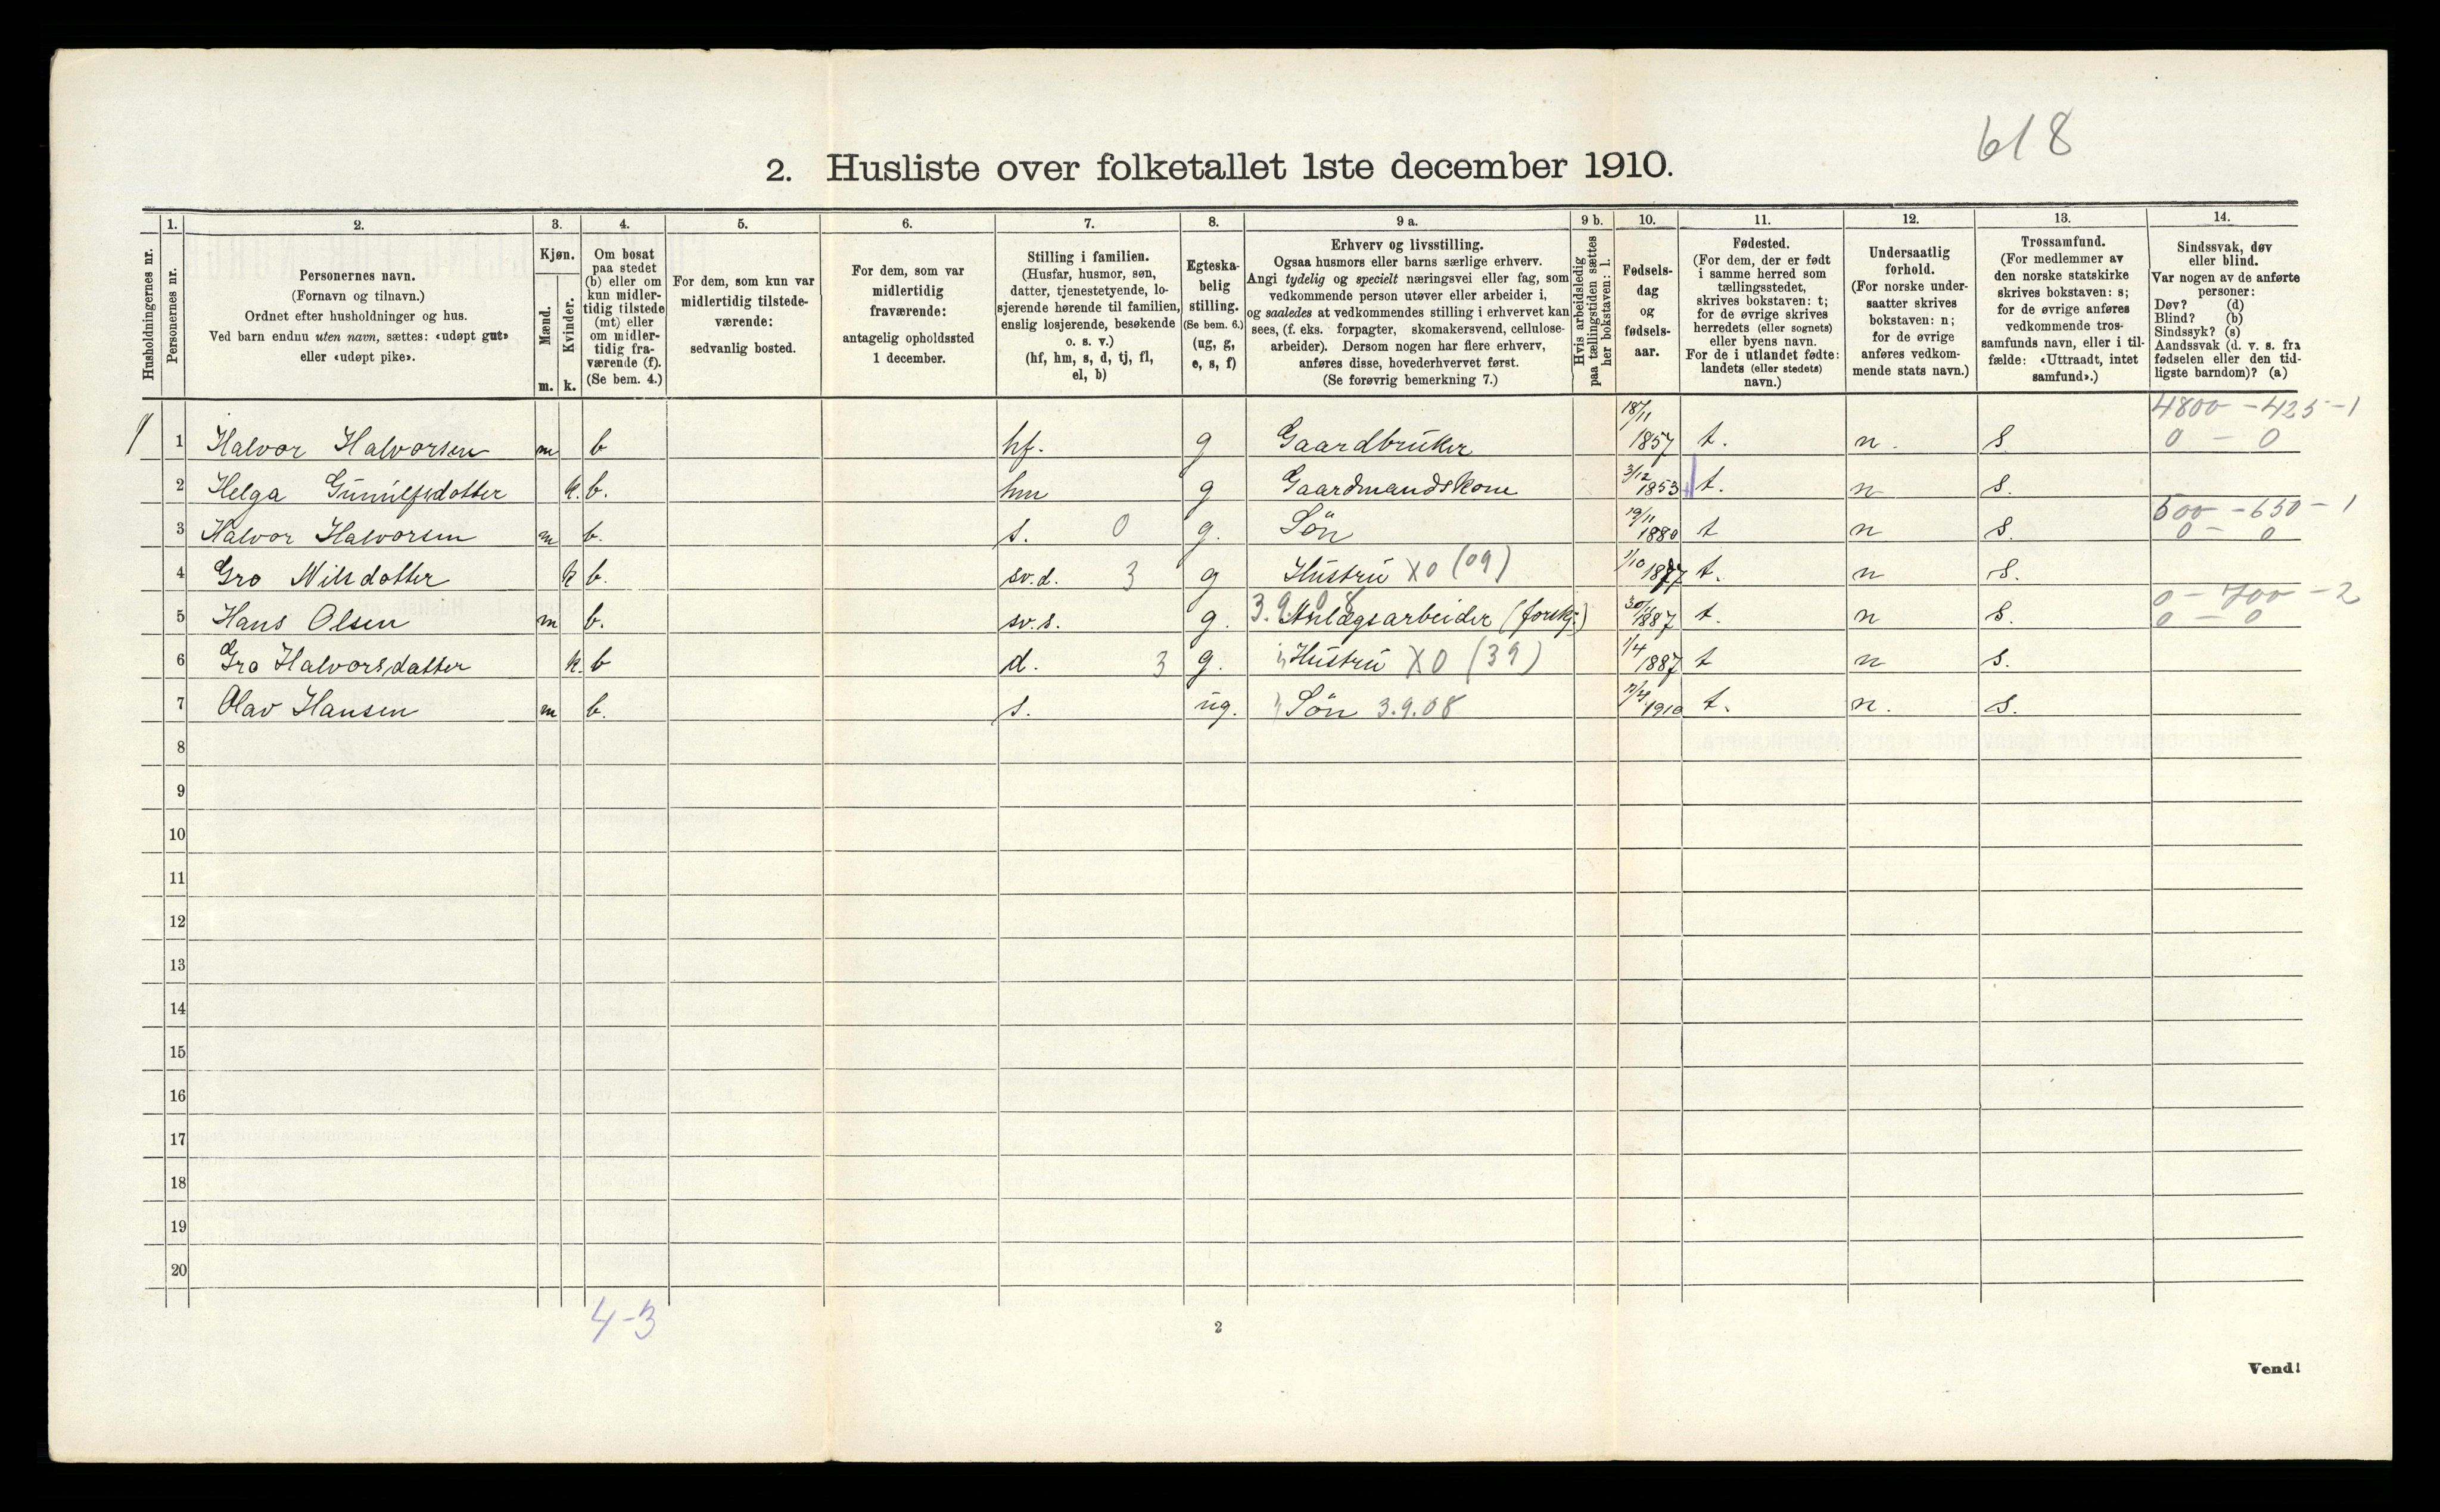 618
2. Husliste over folketallet 1ste december 1910.
Husholdningernes nr.
1.
Personernes nr.
2.
Personernes navn.
(Fornavn og tilnavn.)
Ordnet efter husholdninger og hus.
Ved barn endnu uten navn, sættes: «udøpt gut»
eller «udøpt pike».
3.
Kjøn.
Mænd.
m.
Kvinder.
k.
4.
Om bosat
paa stedet
(b) eller om
kun midler-
tidig tilstede
(mt) eller
om midler-
tidig fra-
værende (f).
(Se bem. 4.)
5.
For dem, som kun var
midlertidig tilstede-
værende:
sedvanlig bosted.
6.
For dem, som var
midlertidig
fraværende:
antagelig opholdssted
1 december.
7.
Stilling i familien.
(Husfar, husmor, søn,
datter, tjenestetyende, lo-
sjerende hørende til familien,
enslig losjerende, besøkende
o. s. v.)
(hf, hm, s, d, tj, fl,
el, b)
8.
Egteska-
belig
stilling.
(Se bem. 6.)
(ug, g,
e, s, f)
9 a.
Erhverv og livsstilling.
Ogsaa husmors eller barns særlige erhverv.
Angi tydelig og specielt næringsvei eller fag, som
vedkommende person utøver eller arbeider i,
og saaledes at vedkommendes stilling i erhvervet kan
sees, (f. eks. forpagter, skomakersvend, cellulose-
arbeider). Dersom nogen har flere erhverv,
anføres disse, hovederhvervet først.
(Se forøvrig bemerkning 7.)
9 b.
Hvis arbeidsledig
paa tællingstiden sættes
her bokstaven: l.
10.
Fødsels-
dag
og
fødsels-
aar.
11.
Fødested.
(For dem, der er født
i samme herred som
tællingsstedet,
skrives bokstaven: t;
for de øvrige skrives
herredets (eller sognets)
eller byens navn.
For de i utlandet fødte:
landets (eller stedets)
navn.)
12.
Undersaatlig
forhold.
(For norske under-
saatter skrives
bokstaven: n;
for de øvrige
anføres vedkom-
mende stats navn.)
13.
Trossamfund.
(For medlemmer av
den norske statskirke
skrives bokstaven: s;
for de øvrige anføres
vedkommende tros-
samfunds navn, eller i til-
fælde: «Uttraadt, intet
samfund».)
14.
Sindssvak, døv
eller blind.
Var nogen av de anførte
personer:
Døv? (d)
Blind? (b)
Sindssyk? (s)
Aandssvak (d. v. s. fra
fødselen eller den tid-
ligste barndom)? (a)
4800 - 425 - 1
1 1 Halvor Halvorsen m b hf. g Gaardbruker 18/11 1857 t. n. s. 0 - 0
2 Helga Gunulfsdotter k. b. hm g Gaardmandskone 3/12 1853 t. n s.
500 - 650 - 1
3 Halvor Halvorsen m b. s. 0 g. Søn 19/11 1880 t n s. 0 - 0
4 Gro Nilsdotter k b. sv.d. 3 g Hustru X0 (09) 1/10 1877 t. n s.
0 - 700 - 2
5 Hans Olsen m b. sv.s. g. 3.9.08 Anlægsarbeider (forskj.) 1887 t. n s. 0 - 0
6 Gro Halvorsdatter k. b d. 3 g. Hustru X0 (39) 1/4 1887 t n s.
7 Olav Hansen m b. s. ug. Søn 3.9.08 1910 t. n. s.
8
9
10
11
12
13
14
15
16
17
18
19
20
4-3
2
Vend!